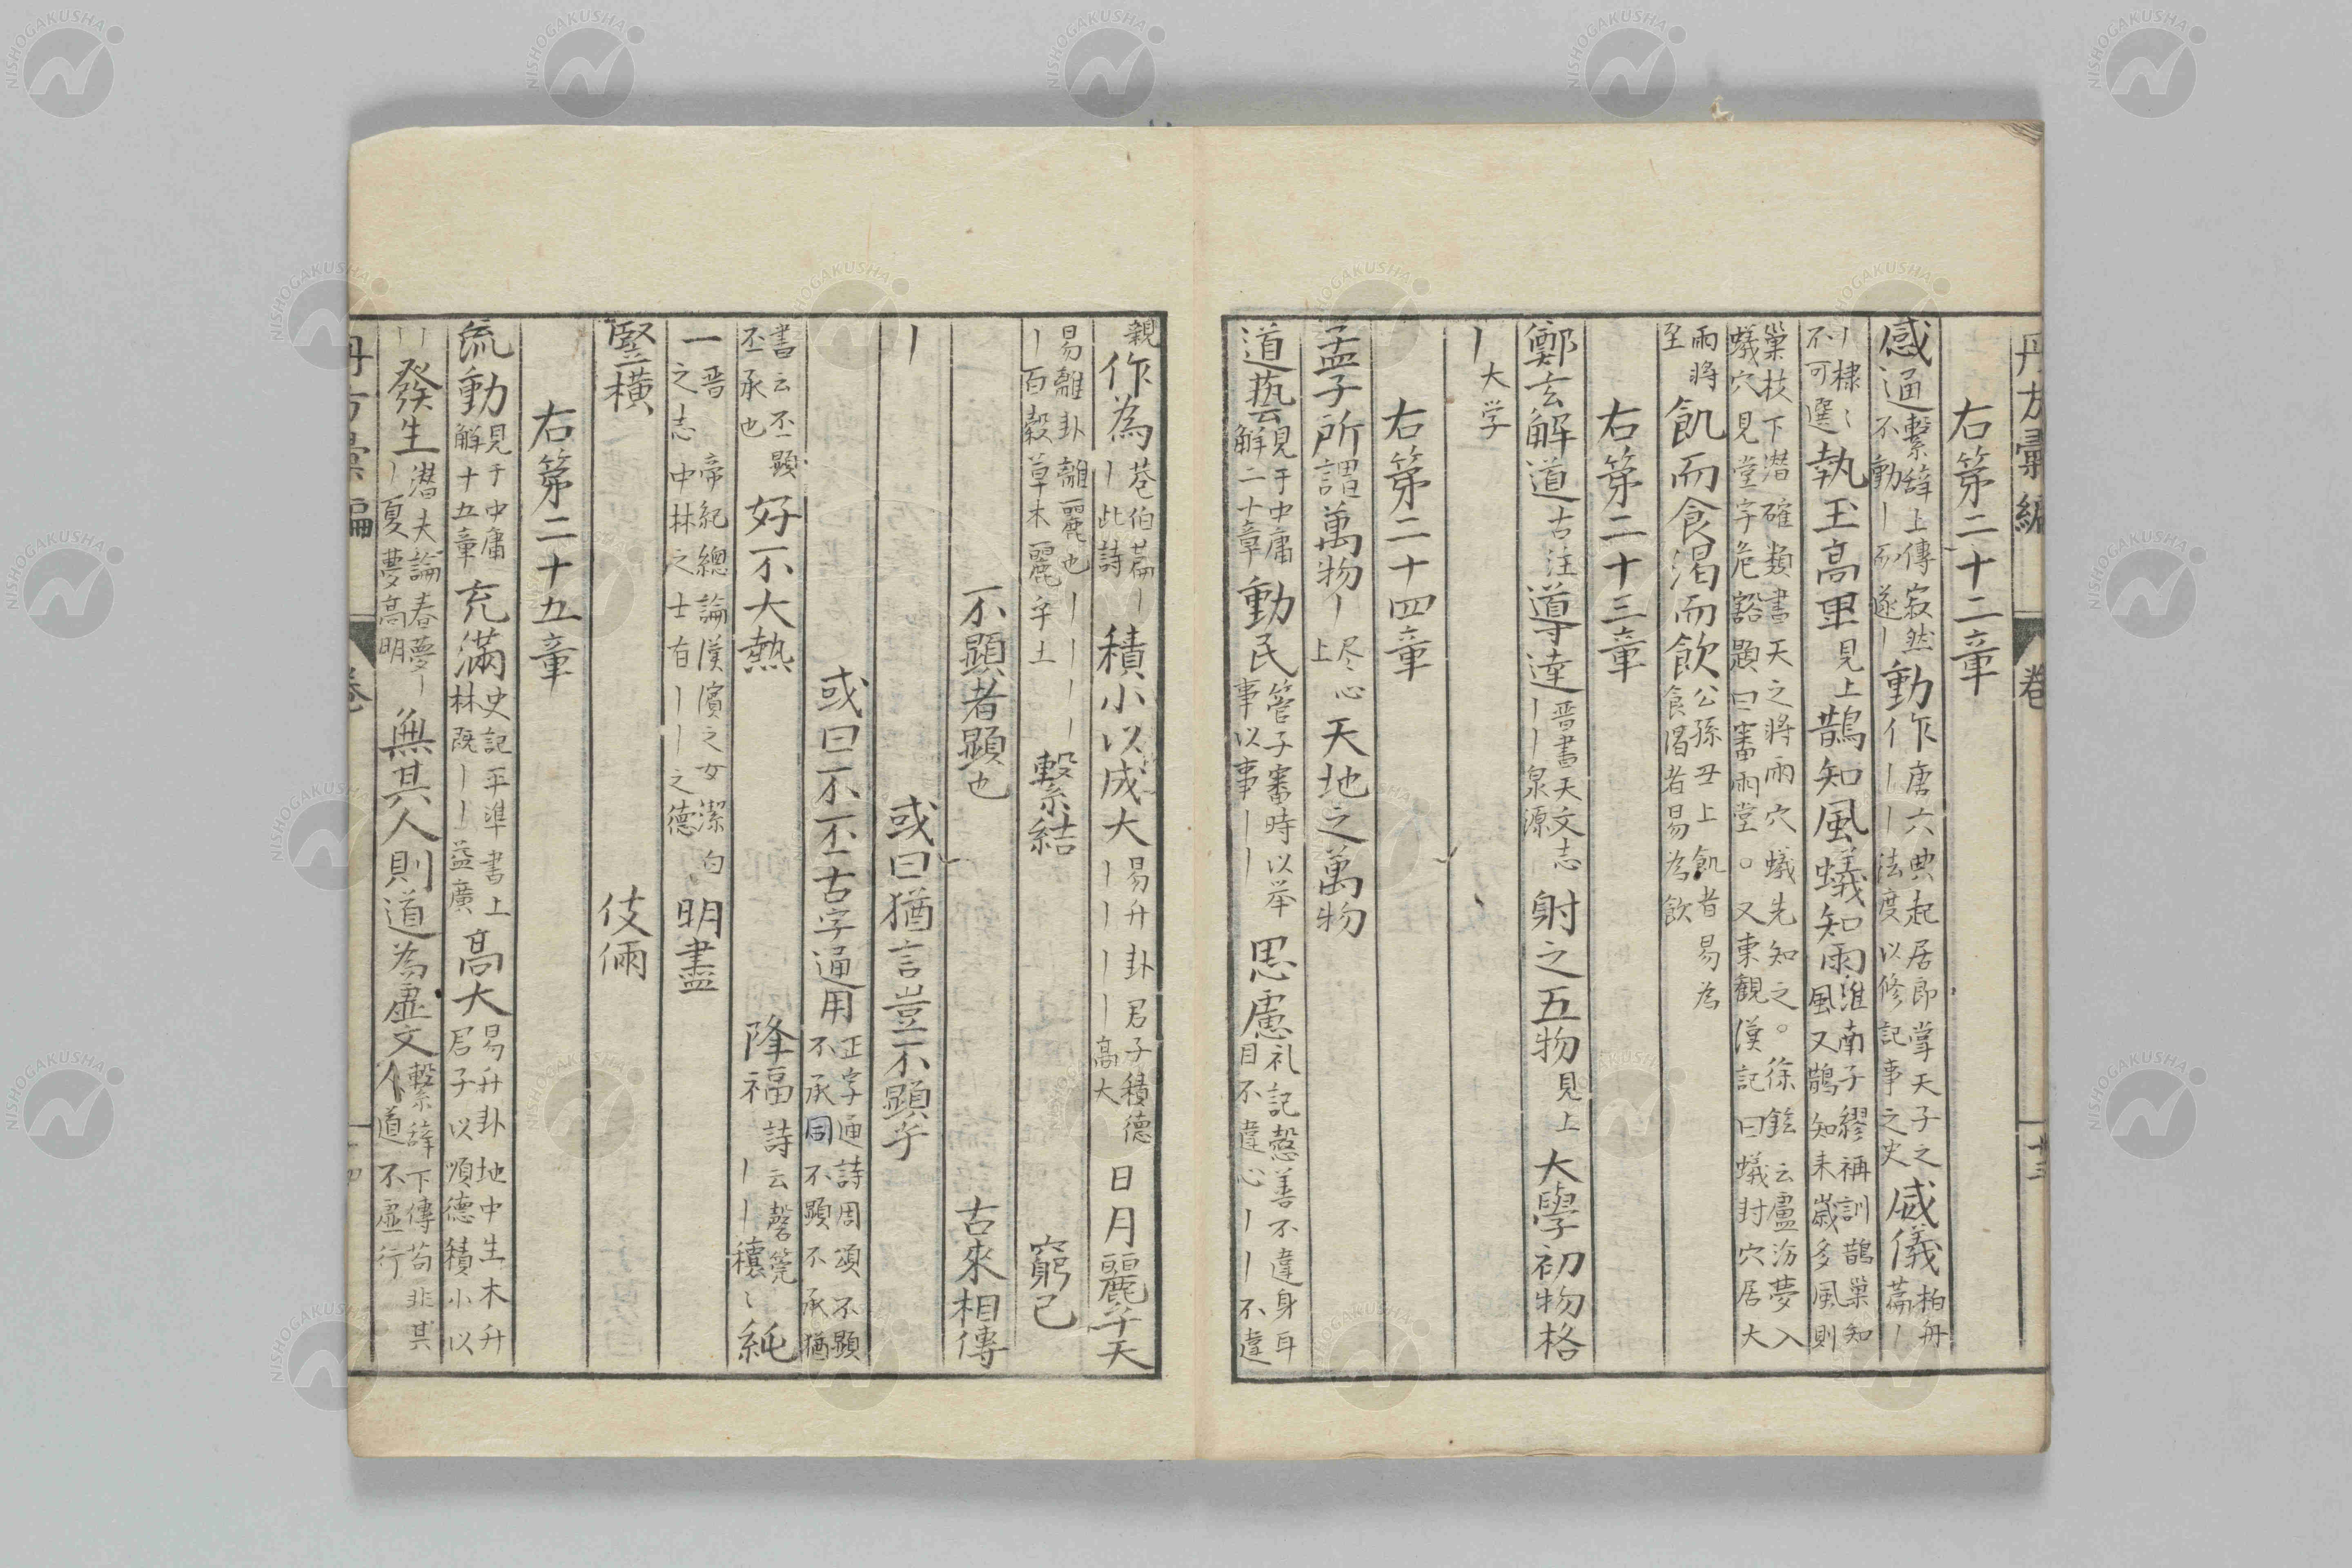 右第二十二章
感通繫辞上傳寂然不動丨而遂丨動作唐六典起居郎掌天子之丨丨法度以修記事之史威儀柏舟篇丨
丨棣〻不可選執玉高卑見上鵲知風蟻知雨淮南子繆称訓鵲巢知風又鵲知来歳多風則
巣枝下潜確類書天之将雨穴蟻先知之。徐鉉云盧汾夢入蟻穴見堂宇危豁題曰審雨堂。又東観漢記曰蟻封穴居大
雨将至飢而食渴而飲公孫丑上飢者易為食渇者易為飲
右第二十三章
鄭玄解道古注導達晋書天文志丨丨泉源射之五物見上大學初物格
丨大学
右第二十四章
孟子所謂萬物丨尽心上天地之萬物
道藝見于中庸解二十章動民管子審時以挙事以事丨丨思慮礼記慤善不違身耳目不違心丨丨不違
親作為巷伯篇丨丨此詩積小以成大易升卦君子積德丨丨丨丨丨高大日月麗乎天
易離卦離麗也丨丨丨丨丨百穀草木麗乎土繋結窮已
不顕者顕也古來相傳
丨或曰猶言豈不顕乎
或曰不丕古字通用正字通詩周頌不顕不承同不顕不承猶
書云丕顕丕承也好不大熱隆福詩云磬筦丨丨穰〻純
一晋帝紀總論漢濱之女潔白之志中林之士有丨丨之德明盡
竪横伎倆
右第二十五章
流動見于中庸解十五章充滿史記平準書上林既丨丨益廣高大易升卦地中生木升君子以順德積小以
丨丨發生潜夫論春夢丨丨夏夢高明無其人則道為虚文繫辞下傳苟非其人道不虚行